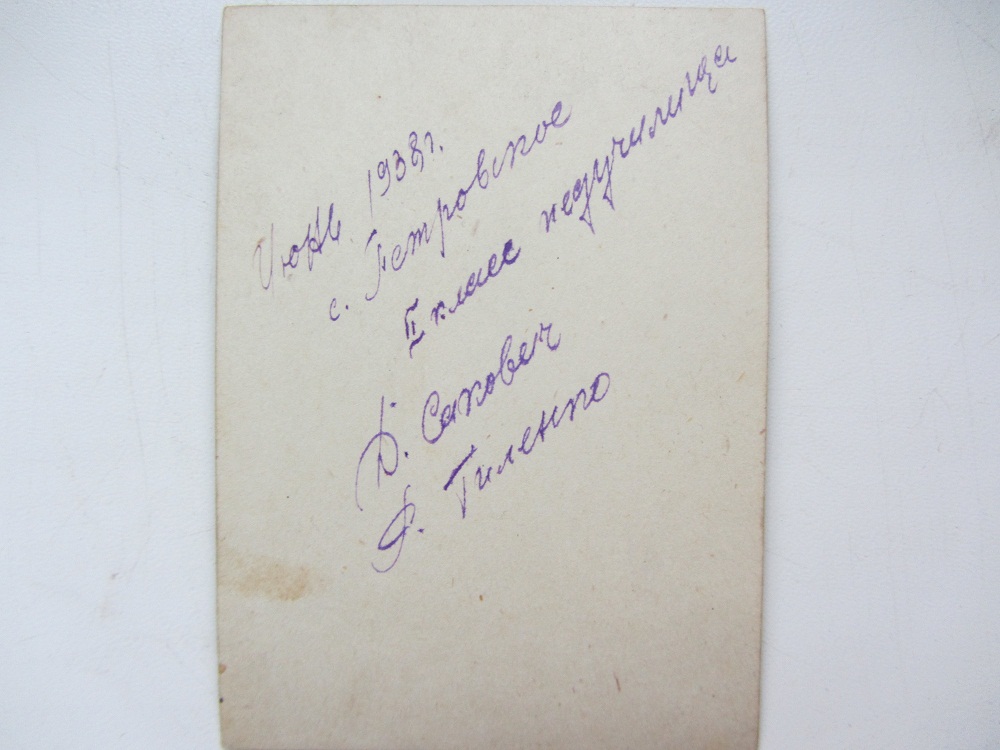 Июнь 1938 г.
с. Петровское
II класс педучилища
Д. Сакович
Ф. Гиленко